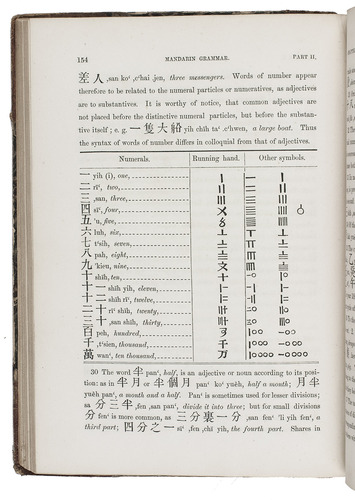 154 MANDARIN GRAMMAR. PART II,
差人 ,san ko‘ ,c‘hai ,jen, three messengers. Words of number appear
therefore to be related to the numeral particles or numeratives, as adjectives
are to substantives. It is worthy of notice, that common adjectives are
not placed before the distinctive numeral particles, but before the substan-
tive itself; e. g. 一隻大船 yih chih ta‘ ,c‘hwen, a large boat. Thus
the syntax of words of number differs in colloquial from that of adjectives.
Numerals. Running hand. Other symbols.
一 yih (i), one,
二 rï‘, two,
三 ,san, three,
四 sï‘, four,
五 ‘u, five,
六 luh, six,
七 t‘sih, seven,
八 pah, eight,
九 ‘kieu, nine,
十 shïh, ten,
十一 shïh yih, eleven,
十二 shïh rï‘, twelve,
二十 rï‘ shïh, twenty,
三十 ,san shïh, thirty,
百 peh, hundred,
千 ,t‘sien, thousand,
萬 wan‘, ten thousand,
30 The word 半 pan‘, half, is an adjective or noun according to its posi-
tion: as in 半月 or 半個月 pan‘ ko‘ yueh, half a month; 月半
yueh pan‘, a month and a half. Pan‘ is sometimes used for lesser divisions;
sa 分三半 ,fen ,san pan‘, divide it into three; but for small divisions
分 fen‘ is more common, as 三分裏一分 ,san fen‘ ‘li yih fen‘, a
third part; 四分之一 sï‘ ,fen ,chï yih, the fourth part. Shares in